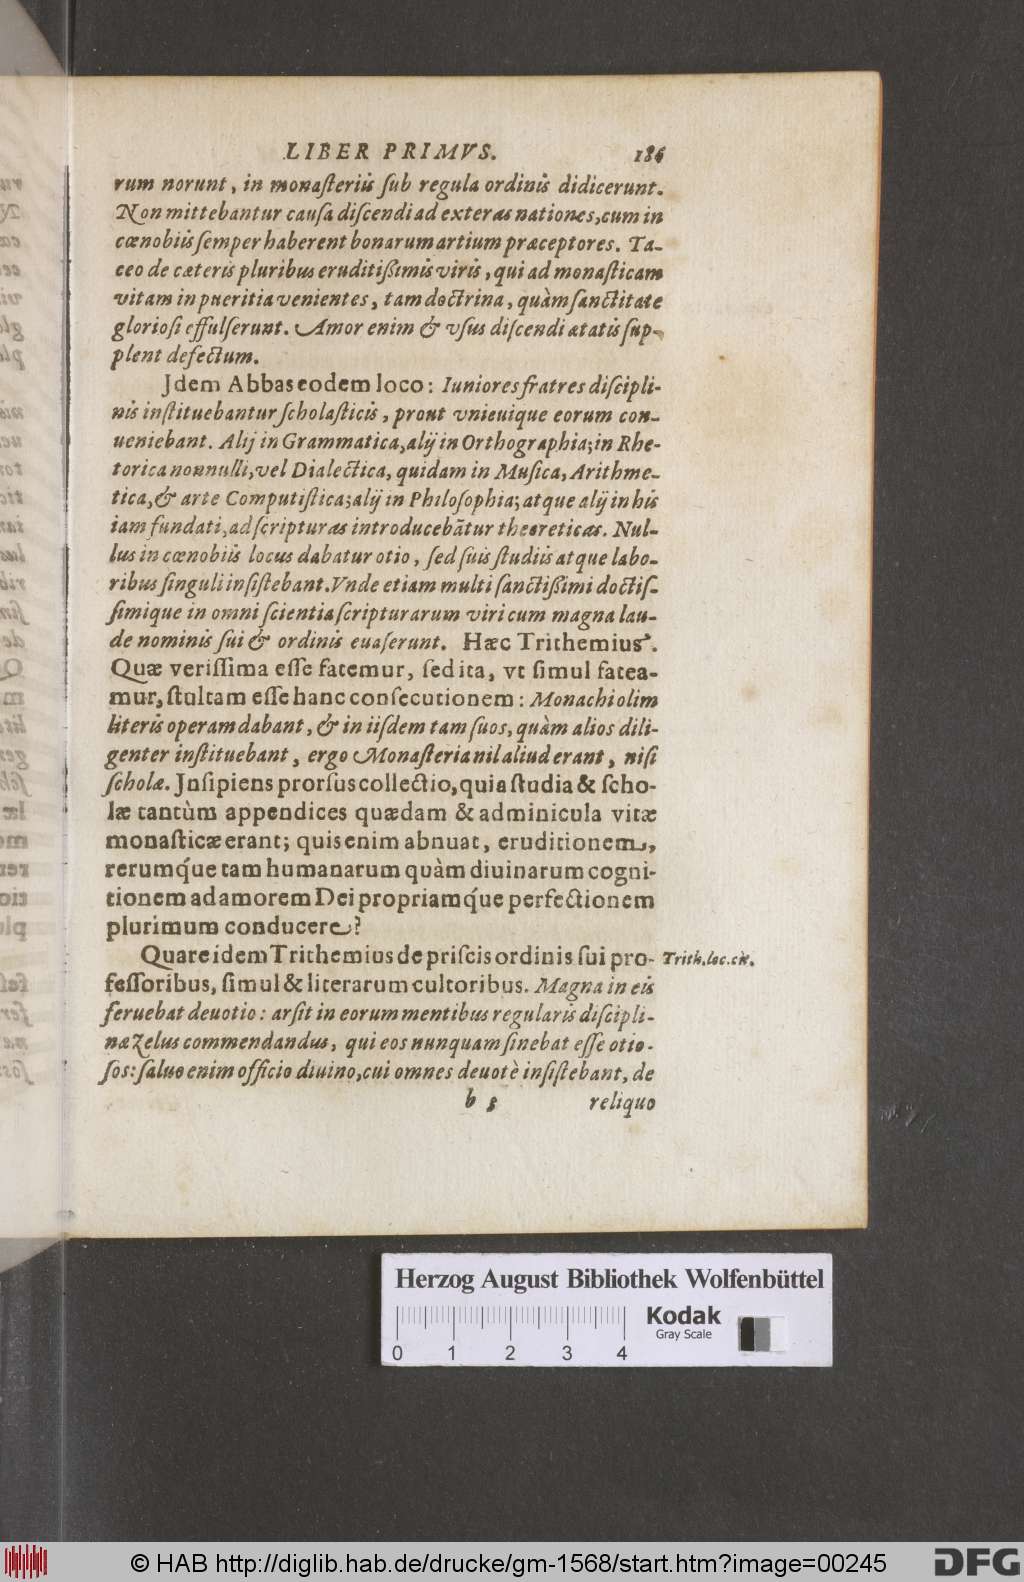 LIBER PRIMVS. 186
rum norunt, in monaſteriis ſub regula ordinis didicerunt.
Non mittebantur cauſa diſcendi ad exteras nationes, cum in
cœnobiis ſemper haberent bonarum artium præceptores. Ta-
ceo de cæteris pluribus eruditißimis viris, qui ad monaſticam
vitam in pueritia venientes, tam doctrina, quàm ſanctitate
glorioſi effulſerunt. Amor enim & vſus diſcendi ætatis ſup-
plent defectum.
Jdem Abbas eodem loco: Iuniores fratres diſcipli-
nis inſtituebantur ſcholaſticis, prout vnicuique eorum con-
ueniebant. Alij in Grammatica, alij in Orthographia; in Rhe-
torica nonnulli, vel Dialectica, quidam in Muſica, Arithme-
tica, & arte Computiſtica; alij in Philoſophia; atque alij in his
iam fundati, ad ſcripturas introducebãtur theoreticas. Nul-
lus in cœnobiis locus dabatur otio, ſed ſuis ſtudiis atque labo-
ribus ſinguli inſiſtebant. Vnde etiam multi ſanctißimi doctiſ-
ſimique in omni ſcientia ſcripturarum viri cum magna lau-
de nominis ſui & ordinis euaſerunt. Hæc Trithemius.
Quæ veriſſima eſſe fatemur, ſed ita, vt ſimul fatea-
mur, ſtultam eſſe hanc conſecutionem: Monachi olim
literis operam dabant, & in iiſdem tam ſuos, quàm alios dili-
genter inſtituebant, ergo Monaſteria nil aliud erant, niſi
ſcholæ. Jnſipiens prorſus collectio, quia ſtudia & ſcho-
læ tantùm appendices quædam & adminicula vitæ
monaſticæ erant; quis enim abnuat, eruditionem,
rerumq́ue tam humanarum quàm diuinarum cogni-
tionem ad amorem Dei propriamq́ue perfectionem
plurimum conducere?
Quare idem Trithemius de priſcis ordinis ſui pro- Trith. loc. cit.
feſſoribus, ſimul & literarum cultoribus. Magna in eis
feruebat deuotio: arſit in eorum mentibus regularis diſcipli-
næ Zelus commendandus, qui eos nunquam ſinebat eſſe otio-
ſos: ſaluo enim officio diuino, cui omnes deuotè inſiſtebant, de
b 3 reliquo
Herzog August Bibliothek Wolfenbüttel
Kodak
Gray Scale
0 1 2 3 4
© HAB http://diglib.hab.de/drucke/gm-1568/start.htm?image=00245
DFG